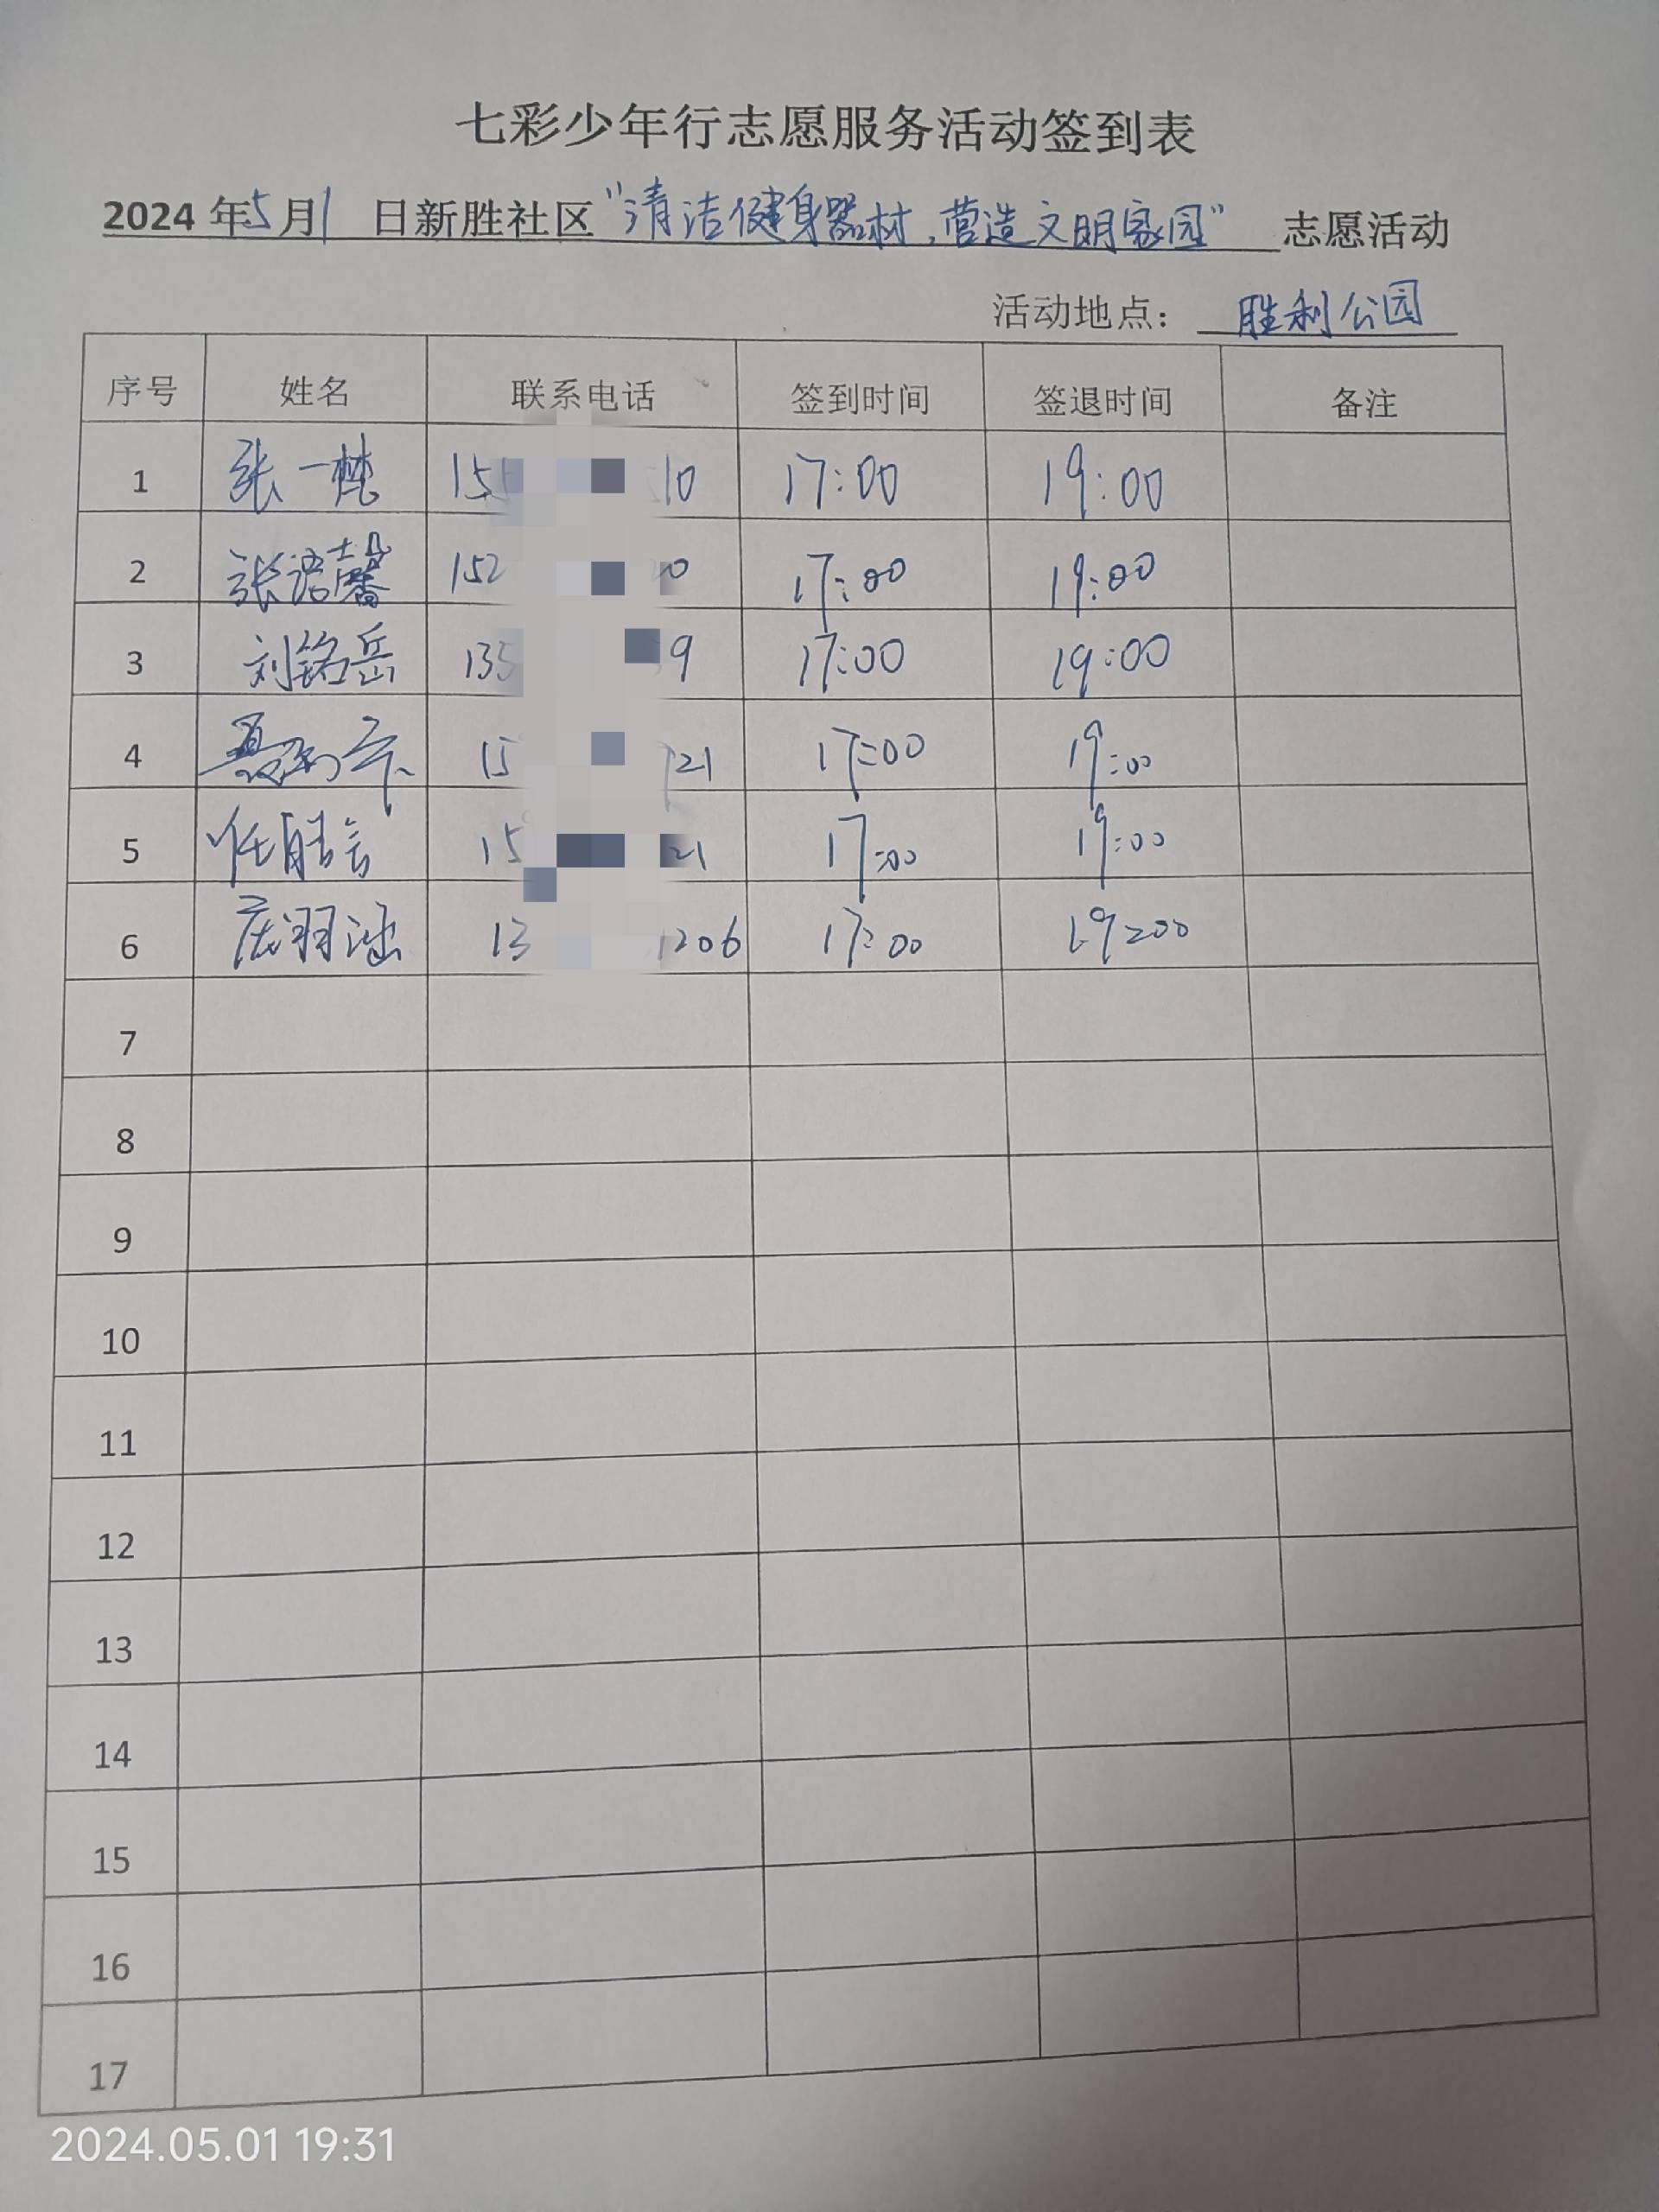 七彩少年行志愿服务活动签到表
2024年5月1 日新胜社区“清洁健身器材,营造文明家园” 志愿活动
活动地点: 胜利公园
序号 姓名 联系电话 签到时间 签退时间 备注
1 张一梵 15 10 17:00 19:00
2 张语馨 152 0 17:00 19:00
3 刘铭岳 135 9 17:00 19:00
4 15 21 17:00 19:00
5 15 21 17:00 19:00
6 庞羽涵 13 1206 17:00 19:00
7
8
9
10
11
12
13
14
15
16
17
2024.05.01 19:31